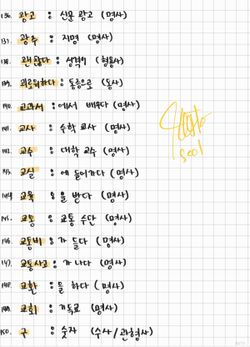 136. 광고 : 신문 광고 (명사)
137. 광주 : 지명 (명사)
138. 괜찮다 : 성격이 (형용사)
139. 괴로워하다 : 동통으로 (동사)
140. 교과서 : 에서 배우다 (명사)
141. 교사 : 수학 교사 (명사)
142. 교수 : 대학 교수 (명사)
143. 교실 : 에 들어가다 (명사)
144. 교육 : 을 받다 (명사)
145. 교통 : 교통 수단 (명사)
146. 교통비 : 가 들다 (명사)
147. 교통사고 : 가 나다 (명사)
148. 교환 : 을 하다 (명사)
149. 교회 : 기독교 (명사)
150. 구 : 숫자 (수사/관형사)
seol